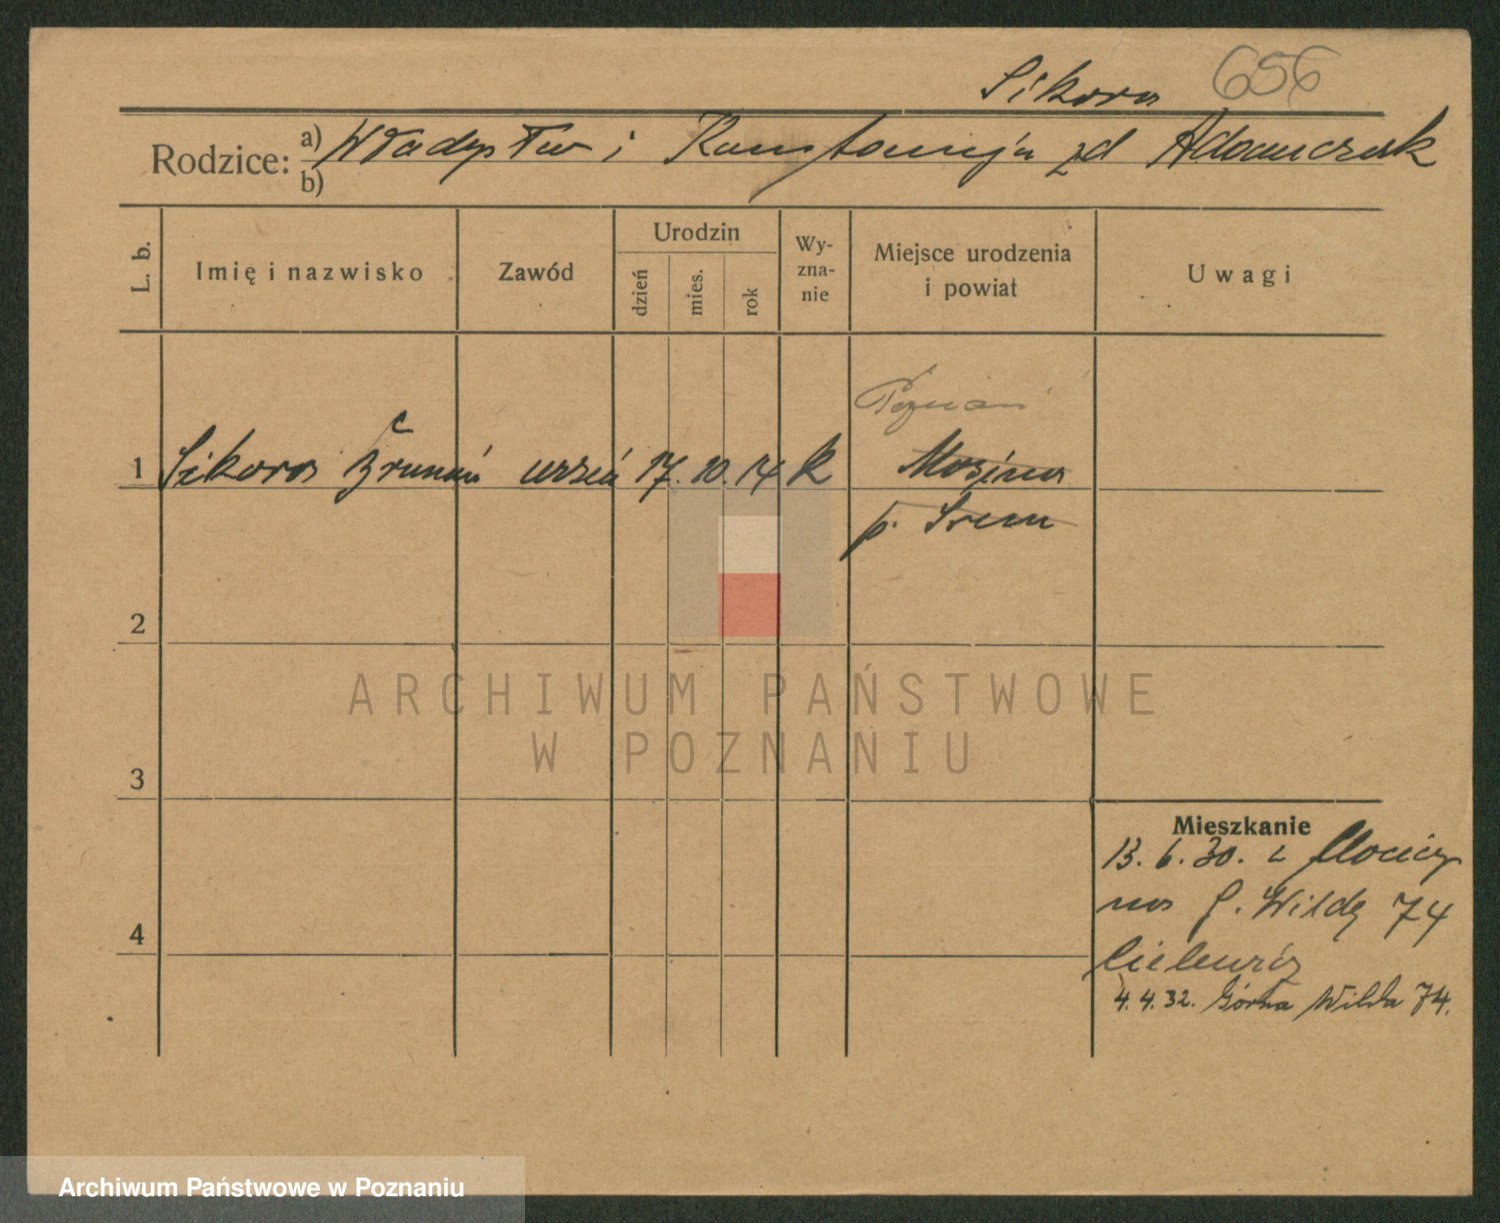 Sikora 656
Rodzice: a) Władysław i Konstancja zd Adamczak
b)
L. b. Imię i nazwisko Zawód Urodzin dzień mies. rok Wy-zna-nie Miejsce urodzenia i powiat Uwagi
Poznań
1 Sikora uczeń 17. 10. 14 k Mosina
p. Śrem
2
ARCHIWUM PAŃSTWOWE
W POZNANIU
3
Mieszkanie
13. 6. 30. z
na G. Wildę 74
4
4. 4. 32. Górna Wilda 74.
Archiwum Państwowe w Poznaniu